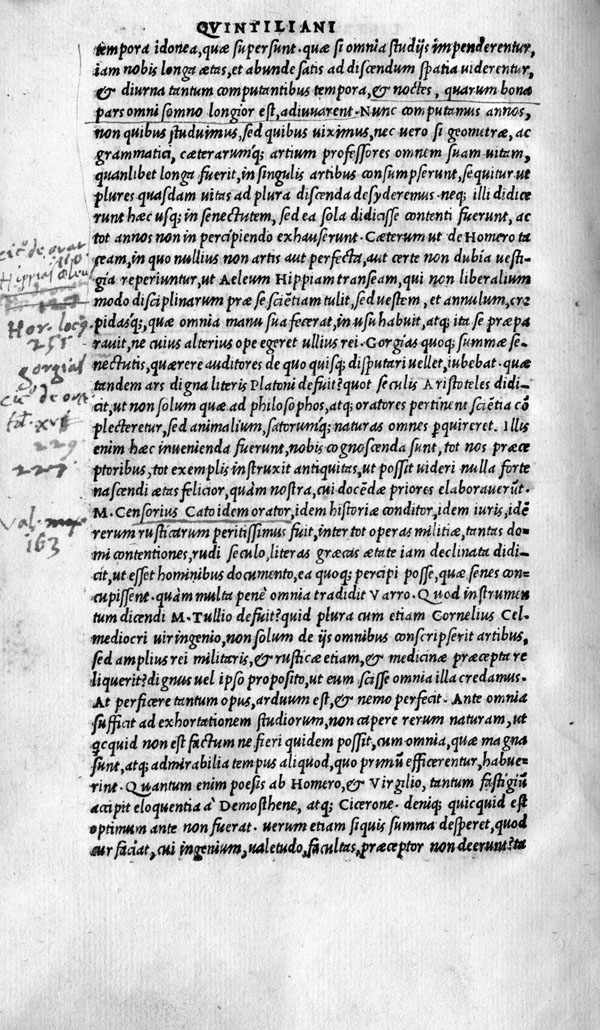 QVINTILIANI
tempora idonea, quæ supersunt. quæ si omnia studijs impenderentur,
iam nobis longa ætas, et abunde satis ad discendum spatia uiderentur,
& diurna tantum computantibus tempora, & noctes, quarum bona
pars omni somno longior est, adiuuarent. Nunc computamus annos,
non quibus studuimus, sed quibus uiximus, nec uero si geometræ, ac
grammatici, cæterarumq; artium professores omnem suam uitam,
quanlibet longa fuerit, in singulis artibus consumpserunt, sequitur ut
plures quasdam uitas ad plura discenda desyderemus. neq; illi didice
runt hæc usq; in senectutem, sed ea sola didicisse contenti fuerunt, ac
tot annos non in percipiendo exhauserunt. Cæterum ut de Homero ta
ceam, in quo nullius non artis aut perfecta, aut certe non dubia uesti-
gia reperiuntur, ut Aeleum Hippiam transeam, qui non liberalium
modo disciplinarum præ se sciẽtiam tulit, sed uestem, et annulum, cre
pidasq;, quæ omnia manu sua fecerat, in usu habuit, atq; ita se præpa
rauit, ne cuius alterius ope egeret ullius rei. Gorgias quoq; summæ se-
nectutis, quærere auditores de quo quisq; disputari uellet, iubebat. quæ
tandem ars digna literis Platoni defuit? quot seculis Aristoteles didi-
cit, ut non solum quæ ad philosophos, atq; oratores pertinent sciẽtia cõ
plecteretur, sed animalium, satorumq; naturas omnes pquireret. Illis
enim hæc inuenienda fuerunt, nobis cognoscenda sunt, tot nos præce
ptoribus, tot exemplis instruxit antiquitas, ut possit uideri nulla forte
nascendi ætas felicior, quàm nostra, cui docẽdæ priores elaborauerũt.
M. Censorius Cato idem orator, idem historiæ conditor, idem iuris, idẽ
rerum rusticarum peritissimus fuit, inter tot operas militiæ, tantas do-
mi contentiones, rudi seculo, literas græcas ætate iam declinata didi-
cit, ut esset hominibus documento, ea quoq; percipi posse, quæ senes con-
cupissent. quàm multa penè omnia tradidit Varro. Quod instrumen
tum dicendi M. Tullio defuit? quid plura cum etiam Cornelius Cel-
mediocri uir ingenio, non solum de ijs omnibus conscripserit artibus,
sed amplius rei militaris, & rusticæ etiam, & medicinæ præcepta re
liquerit? dignus uel ipso proposito, ut eum scisse omnia illa credamus.
At perficere tantum opus, arduum est, & nemo perfecit. Ante omnia
sufficit ad exhortationem studiorum, non capere rerum naturam, ut
qcquid non est factum ne fieri quidem possit, cum omnia, quæ magna
sunt, atq; admirabilia tempus aliquod, quo primũ efficerentur, habue-
rint. Quantum enim poesis ab Homero, & Virgilio, tantum fastigiũ
accipit eloquentia à Demosthene, atq; Cicerone. deniq; quicquid est
optimum ante non fuerat. uerum etiam siquis summa desperet, quod
cur faciat, cui ingenium, ualetudo, facultas, præceptor non deerunt? ta
de orat
Hippias
Hor.
251
gorgias
de
229
227
Val. max
163